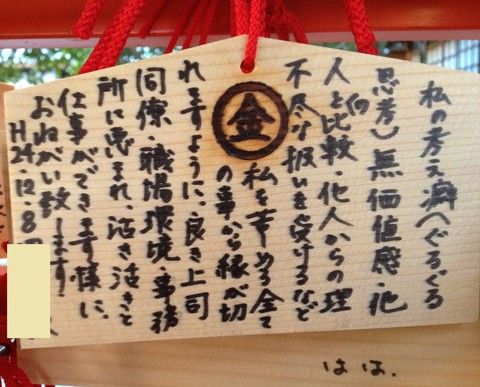 私の考え癖(ぐるぐる
思考)無価値感・他
人との比較・他人からの理
不尽な扱いを受けるなど
金
私を責める全て
の事から縁が切
れますように、良き上司
同僚・職場環境・事務
所に恵まれ、活き活きと
仕事ができます様に、
おねがい致します!
H24.12.8
はは、